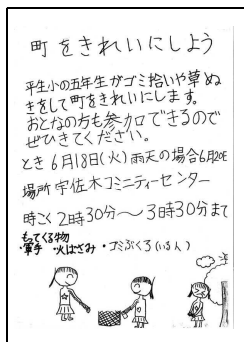 町をきれいにしよう
平生小の五年生がゴミ拾いや草ぬ
きをして町をきれいにします。
おとなの方も参加できるので
ぜひきてください。
とき 6月18日(火)雨天の場合6月20日
場所 宇佐木コミニティーセンター
時こく 2時30分〜3時30分まで
もってくる物
・軍手 ・火ばさみ ・ゴミぶくろ(いる人)